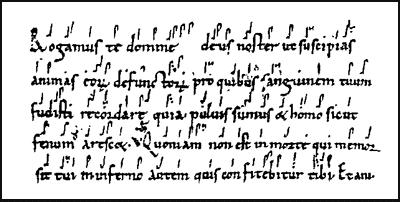 Rogamus te domine deus noster ut suscipias
animas eorum defunctorum pro quibus sanguinem tuum
fudisti recordare quia puluis sumus & homo sicut
fenum & Quoniam non est in morte qui memor
sit tui in inferno autem quis confitebitur tibi Et an